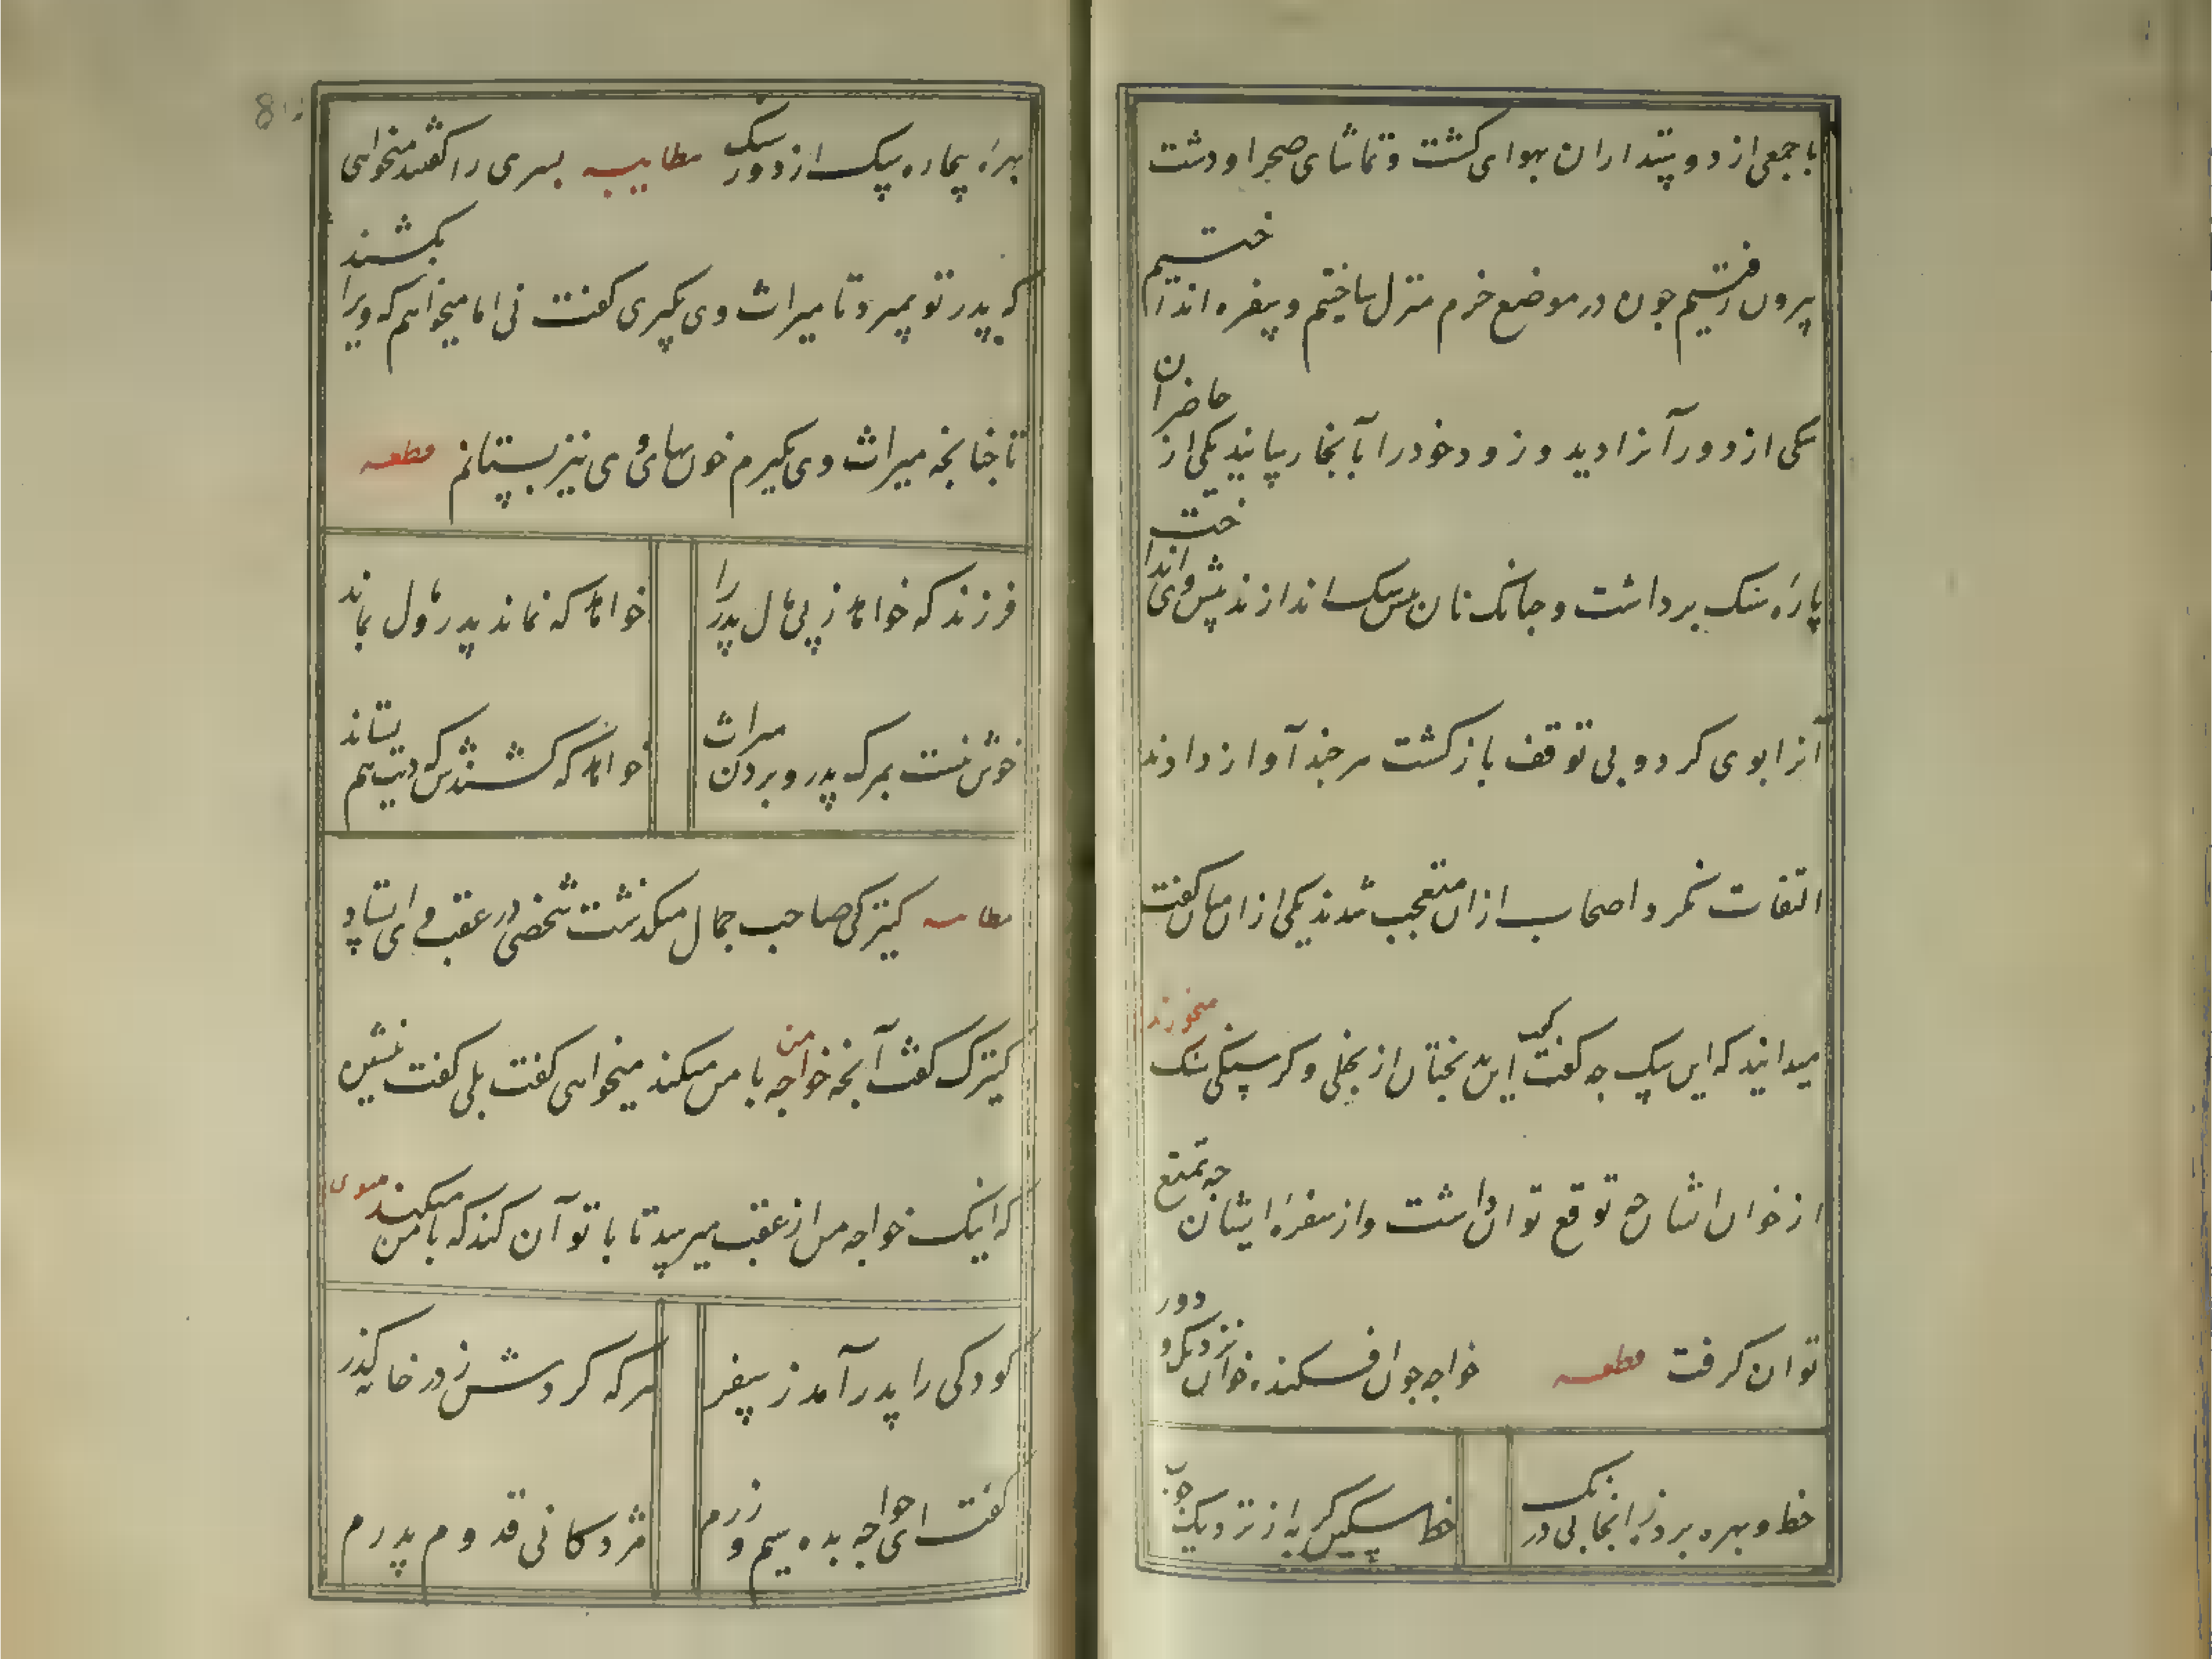 با جمعی از دوستداران بهوای کشت و تماشای صحرا و دشت
بیرون رفتیم چون در موضع خرم منزل ساختیم و سفره انداختیم
سکی از دور آنرا دید و زود خود را بآنجا رسانید یکی از حاضران
پارهٔ سنک برداشت و چنانک نان پیش سک اندازند پیش وی انداخت
آنرا بوی کرد و بی توقف بازکشت هر چند آواز دادند
التفات نکرد اصحاب ازان متعجب شدند یکی ازان میان کفت
میدانید که این سک چه کفت کفت این بدبختان از بخیلی و کرسنکی سنک میخورند
از خوان ایشان چه توقع توان داشت و از سفرهٔ ایشان چه تمتع
توان کرفت قطعه خواجه چون افکند خوان نزدیک و دور
حظ و بهره برد زانجا بی درنک حظ مسکین کربه از نزدیک چوب
بهرهٔ بیچاره سک از دور سنک مطایبه پسری را کفتند میخواهی
که پدر تو بمیرد تا میراث وی بکیری کفت نی اما میخواهم که ویرا بکشند
تا چنانچه میراث وی بکیرم خونبهای وی نیز بستانم قطعه
فرزند که خواهد ز پی مال پدر را خواهد که نماند پدر و مال بماند
خوش نیست بمرک پدر و بردن میراث خواهد که کشندش که دیت هم بستاند
مطایبه کنیزکی صاحب جمال میکذشت شخصی در عقب وی ایستاد
کنیزک کفت آنچه خواجه من با من میکند میخواهی کفت بلی کفت بنشین
که اینک خواجه من از عقب میرسد تا با تو آن کند که با من میکند مثنوی
کودکی را پدر آمد ز سفر هر که کردش ز در خانه کذر
کفت ای خواجه بده سیم و زرم مژدکانی قدوم پدرم